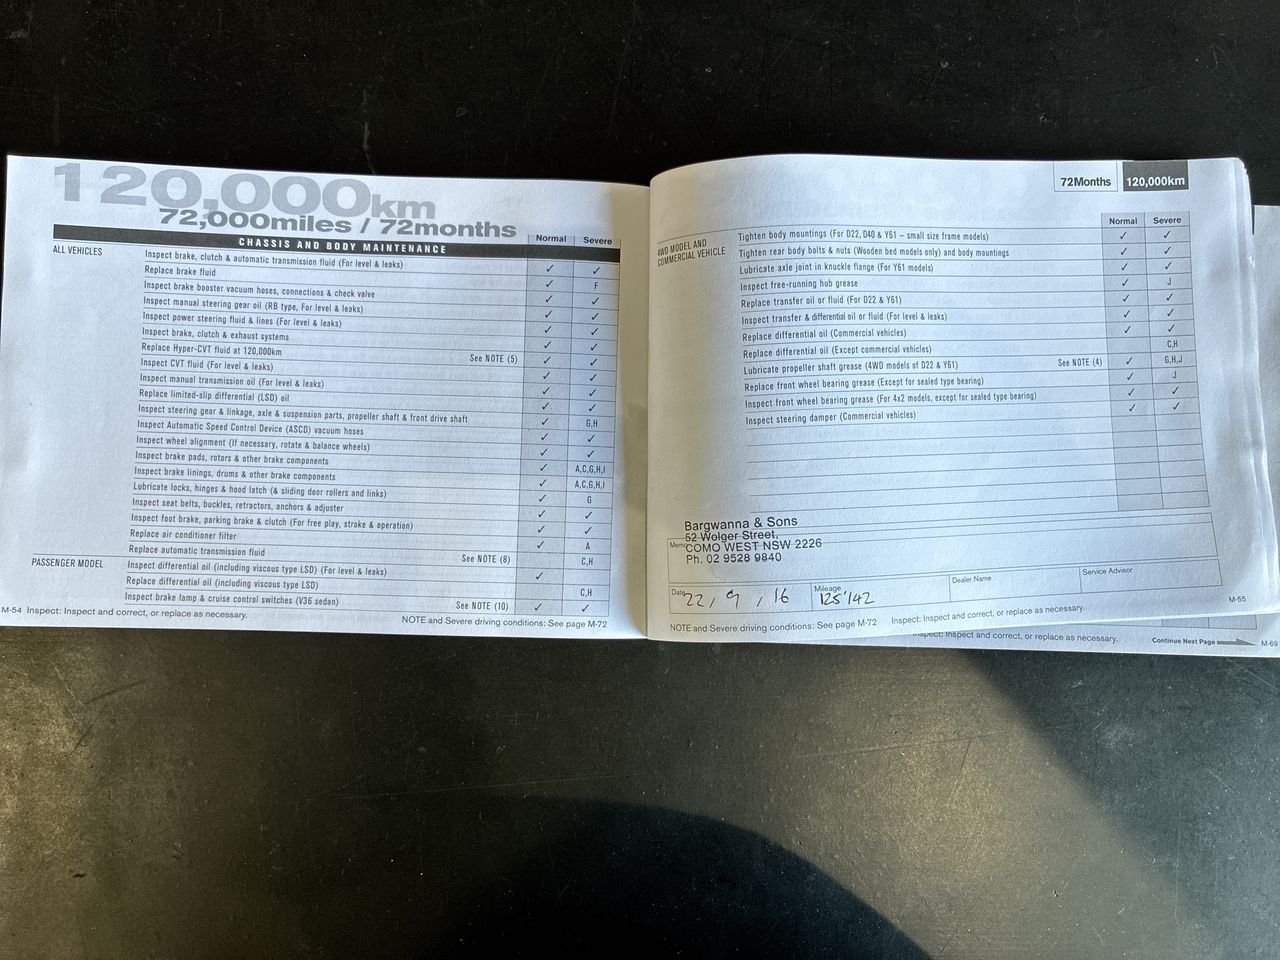 120,000km
72,000miles / 72months
CHASSIS AND BODY MAINTENANCE Normal Severe
ALL VEHICLES
Inspect brake, clutch & automatic transmission fluid (For level & leaks) ✓ ✓
Replace brake fluid ✓ F
Inspect brake booster vacuum hoses, connections & check valve ✓ ✓
Inspect manual steering gear oil (RB type, For level & leaks) ✓ ✓
Inspect power steering fluid & lines (For level & leaks) ✓ ✓
Inspect brake, clutch & exhaust systems ✓ ✓
Replace Hyper-CVT fluid at 120,000km See NOTE (5) ✓ ✓
Inspect CVT fluid (For level & leaks) ✓ ✓
Inspect manual transmission oil (For level & leaks) ✓ ✓
Replace limited-slip differential (LSD) oil ✓ ✓
Inspect steering gear & linkage, axle & suspension parts, propeller shaft & front drive shaft ✓ G,H
Inspect Automatic Speed Control Device (ASCD) vacuum hoses ✓ ✓
Inspect wheel alignment (If necessary, rotate & balance wheels) ✓ ✓
Inspect brake pads, rotors & other brake components ✓ A,C,G,H,I
Inspect brake linings, drums & other brake components ✓ A,C,G,H,I
Lubricate locks, hinges & hood latch (& sliding door rollers and links) ✓ G
Inspect seat belts, buckles, retractors, anchors & adjuster ✓ ✓
Inspect foot brake, parking brake & clutch (For free play, stroke & operation) ✓ ✓
Replace air conditioner filter ✓ A
Replace automatic transmission fluid See NOTE (8) C,H
PASSENGER MODEL
Inspect differential oil (including viscous type LSD) (For level & leaks) ✓
Replace differential oil (including viscous type LSD) C,H
Inspect brake lamp & cruise control switches (V36 sedan) See NOTE (10) ✓ ✓
M-54 Inspect: Inspect and correct, or replace as necessary.
NOTE and Severe driving conditions: See page M-72
72Months 120,000km
Normal Severe
4WD MODEL AND
COMMERCIAL VEHICLE
Tighten body mountings (For D22, D40 & Y61 – small size frame models) ✓ ✓
Tighten rear body bolts & nuts (Wooden bed models only) and body mountings ✓ ✓
Lubricate axle joint in knuckle flange (For Y61 models) ✓ ✓
Inspect free-running hub grease ✓ J
Replace transfer oil or fluid (For D22 & Y61) ✓ ✓
Inspect transfer & differential oil or fluid (For level & leaks) ✓ ✓
Replace differential oil (Commercial vehicles) ✓ ✓
Replace differential oil (Except commercial vehicles) C,H
Lubricate propeller shaft grease (4WD models of D22 & Y61) See NOTE (4) ✓ G,H,J
Replace front wheel bearing grease (Except for sealed type bearing) ✓ J
Inspect front wheel bearing grease (For 4x2 models, except for sealed type bearing) ✓ ✓
Inspect steering damper (Commercial vehicles) ✓ ✓
Bargwanna & Sons
52 Wolger Street,
Memo
COMO WEST NSW 2226
Ph. 02 9528 9840
Date 22, 9, 16 Mileage 125'142 Dealer Name Service Advisor
NOTE and Severe driving conditions: See page M-72 Inspect: Inspect and correct, or replace as necessary. M-55
Inspect: Inspect and correct, or replace as necessary. Continue Next Page M-69